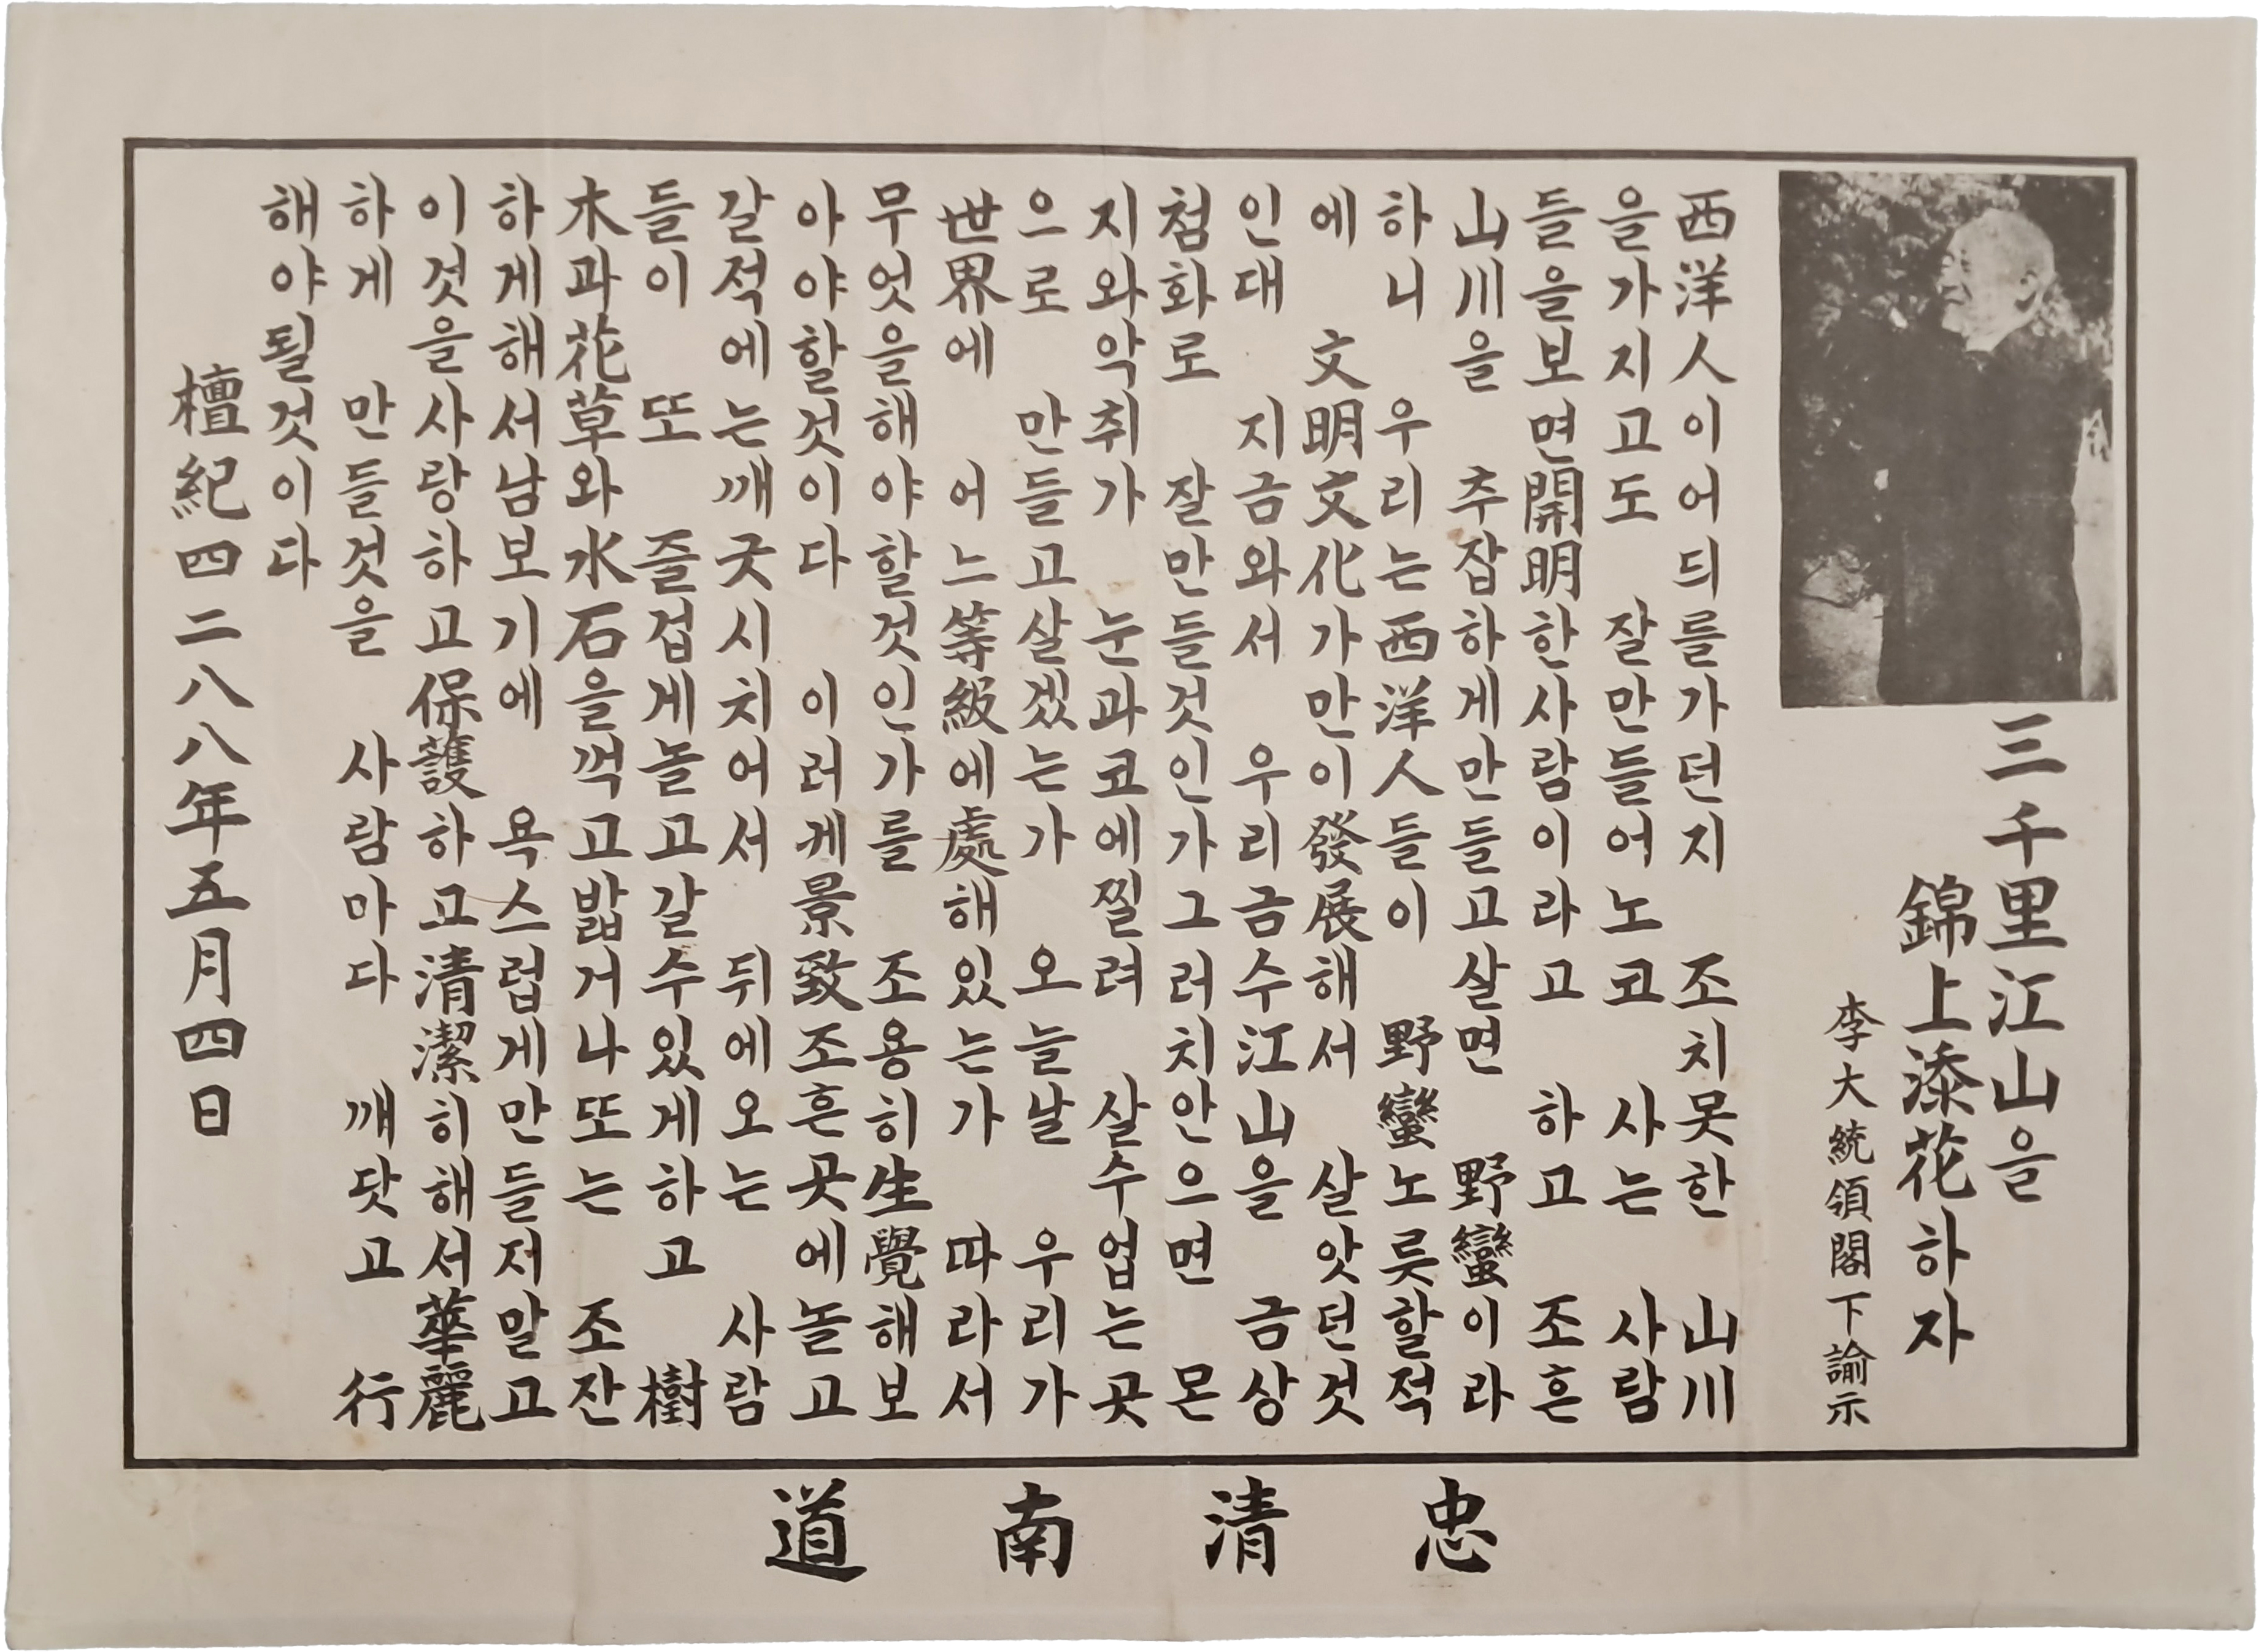 三千里江山을
錦上添花하자
李大統領閣下諭示
西洋人이어듸를가던지 조치못한 山川
을가지고도 잘만들어노코 사는 사람
들을보면開明한사람이라고 하고 조흔
山川을 추잡하게만들고살면 野蠻이라
하니 우리는西洋人들이 野蠻노릇할적
에 文明文化가만이發展해서 살앗던것
인대 지금와서 우리금수江山을 금상
첨화로 잘만들것인가그러치안으면 몬
지와악취가 눈과코에찔려 살수업는곳
으로 만들고살겠는가 오늘날 우리가
世界에 어느等級에處해있는가 따라서
무엇을해야할것인가를 조용히生覺해보
아야할것이다 이러케景致조흔곳에놀고
갈적에는깨긋시치어서 뒤에오는 사람
들이 또 즐겁게놀고갈수있게하고 樹
木과花草와水石을꺽고밟거나또는 조잔
하게해서남보기에 욕스럽게만들지말고
이것을사랑하고保護하고清潔히해서華麗
하게 만들것을 사람마다 깨닷고 行
해야될것이다
檀紀四二八八年五月四日
忠清南道